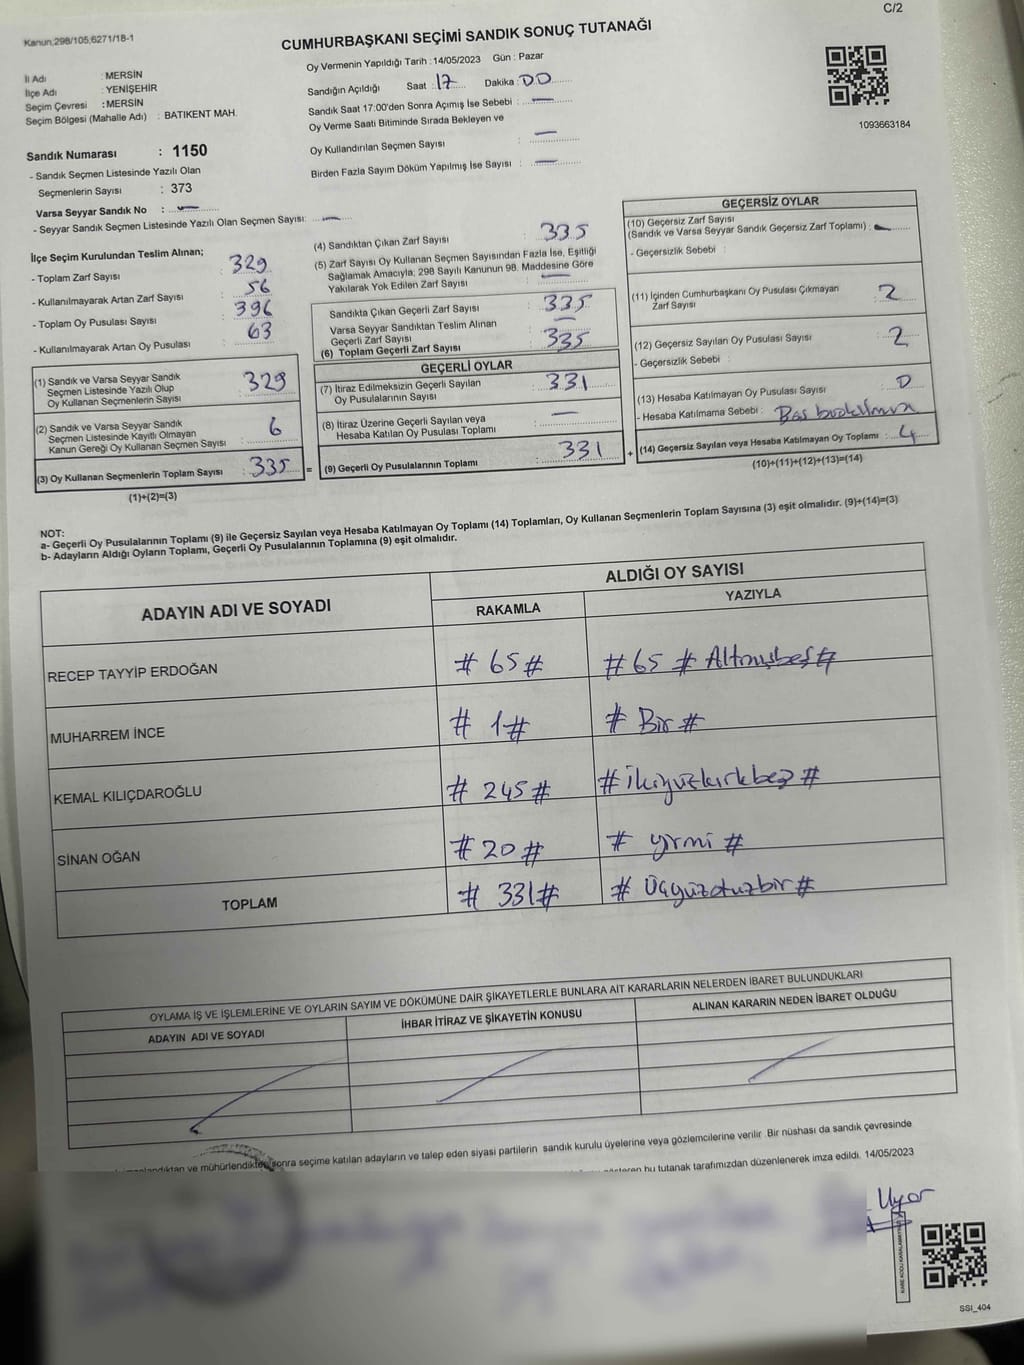 C/2
Kanun,298/105,6271/18-1
CUMHURBAŞKANI SEÇİMİ SANDIK SONUÇ TUTANAĞI
İl Adı : MERSİN
İlçe Adı : YENİŞEHİR
Seçim Çevresi : MERSİN
Seçim Bölgesi (Mahalle Adı) : BATIKENT MAH.
Oy Vermenin Yapıldığı Tarih : 14/05/2023 Gün : Pazar
Sandığın Açıldığı Saat : 17 Dakika : 00
Sandık Saat 17:00'den Sonra Açımış İse Sebebi : —
Oy Verme Saati Bitiminde Sırada Bekleyen ve
Oy Kullandırılan Seçmen Sayısı : —
Birden Fazla Sayım Döküm Yapılmış İse Sayısı : —
1093663184
Sandık Numarası : 1150
- Sandık Seçmen Listesinde Yazılı Olan
Seçmenlerin Sayısı : 373
Varsa Seyyar Sandık No : —
- Seyyar Sandık Seçmen Listesinde Yazılı Olan Seçmen Sayısı: —
İlçe Seçim Kurulundan Teslim Alınan;
- Toplam Zarf Sayısı : 329
- Kullanılmayarak Artan Zarf Sayısı : 56
- Toplam Oy Pusulası Sayısı : 396
- Kullanılmayarak Artan Oy Pusulası : 63
(1) Sandık ve Varsa Seyyar Sandık
Seçmen Listesinde Yazılı Olup
Oy Kullanan Seçmenlerin Sayısı : 329
(2) Sandık ve Varsa Seyyar Sandık
Seçmen Listesinde Kayıtlı Olmayan
Kanun Gereği Oy Kullanan Seçmen Sayısı : 6
(3) Oy Kullanan Seçmenlerin Toplam Sayısı : 335 =
(1)+(2)=(3)
(4) Sandıktan Çıkan Zarf Sayısı : 335
(5) Zarf Sayısı Oy Kullanan Seçmen Sayısından Fazla İse, Eşitliği
Sağlamak Amacıyla; 298 Sayılı Kanunun 98. Maddesine Göre
Yakılarak Yok Edilen Zarf Sayısı : —
Sandıkta Çıkan Geçerli Zarf Sayısı : 335
Varsa Seyyar Sandıktan Teslim Alınan
Geçerli Zarf Sayısı : —
(6) Toplam Geçerli Zarf Sayısı : 335
GEÇERLİ OYLAR
(7) İtiraz Edilmeksizin Geçerli Sayılan
Oy Pusulalarının Sayısı : 331
(8) İtiraz Üzerine Geçerli Sayılan veya
Hesaba Katılan Oy Pusulası Toplamı : —
(9) Geçerli Oy Pusulalarının Toplamı : 331 +
GEÇERSİZ OYLAR
(10) Geçersiz Zarf Sayısı
(Sandık ve Varsa Seyyar Sandık Geçersiz Zarf Toplamı) : —
- Geçersizlik Sebebi :
(11) İçinden Cumhurbaşkanı Oy Pusulası Çıkmayan
Zarf Sayısı : 2
(12) Geçersiz Sayılan Oy Pusulası Sayısı : 2
- Geçersizlik Sebebi :
(13) Hesaba Katılmayan Oy Pusulası Sayısı : 0
- Hesaba Katılmama Sebebi :
(14) Geçersiz Sayılan veya Hesaba Katılmayan Oy Toplamı : 4
(10)+(11)+(12)+(13)=(14)
NOT:
a- Geçerli Oy Pusulalarının Toplamı (9) ile Geçersiz Sayılan veya Hesaba Katılmayan Oy Toplamı (14) Toplamları, Oy Kullanan Seçmenlerin Toplam Sayısına (3) eşit olmalıdır. (9)+(14)=(3)
b- Adayların Aldığı Oyların Toplamı, Geçerli Oy Pusulalarının Toplamına (9) eşit olmalıdır.
ADAYIN ADI VE SOYADI
ALDIĞI OY SAYISI
RAKAMLA YAZIYLA
RECEP TAYYİP ERDOĞAN # 65 # # 65 # Altmışbeş #
MUHARREM İNCE # 1 # # Bir #
KEMAL KILIÇDAROĞLU # 245 # # İkiyüzkırkbeş #
SİNAN OĞAN # 20 # # yirmi #
TOPLAM # 331 # # Üçyüzotuzbir #
OYLAMA İŞ VE İŞLEMLERİNE VE OYLARIN SAYIM VE DÖKÜMÜNE DAİR ŞİKAYETLERLE BUNLARA AİT KARARLARIN NELERDEN İBARET BULUNDUKLARI
ADAYIN ADI VE SOYADI İHBAR İTİRAZ VE ŞİKAYETİN KONUSU ALINAN KARARIN NEDEN İBARET OLDUĞU
ve mühürlendikten sonra seçime katılan adayların ve talep eden siyasi partilerin sandık kurulu üyelerine veya gözlemcilerine verilir. Bir nüshası da sandık çevresinde
bu tutanak tarafımızdan düzenlenerek imza edildi. 14/05/2023
Uyar
SSI_404